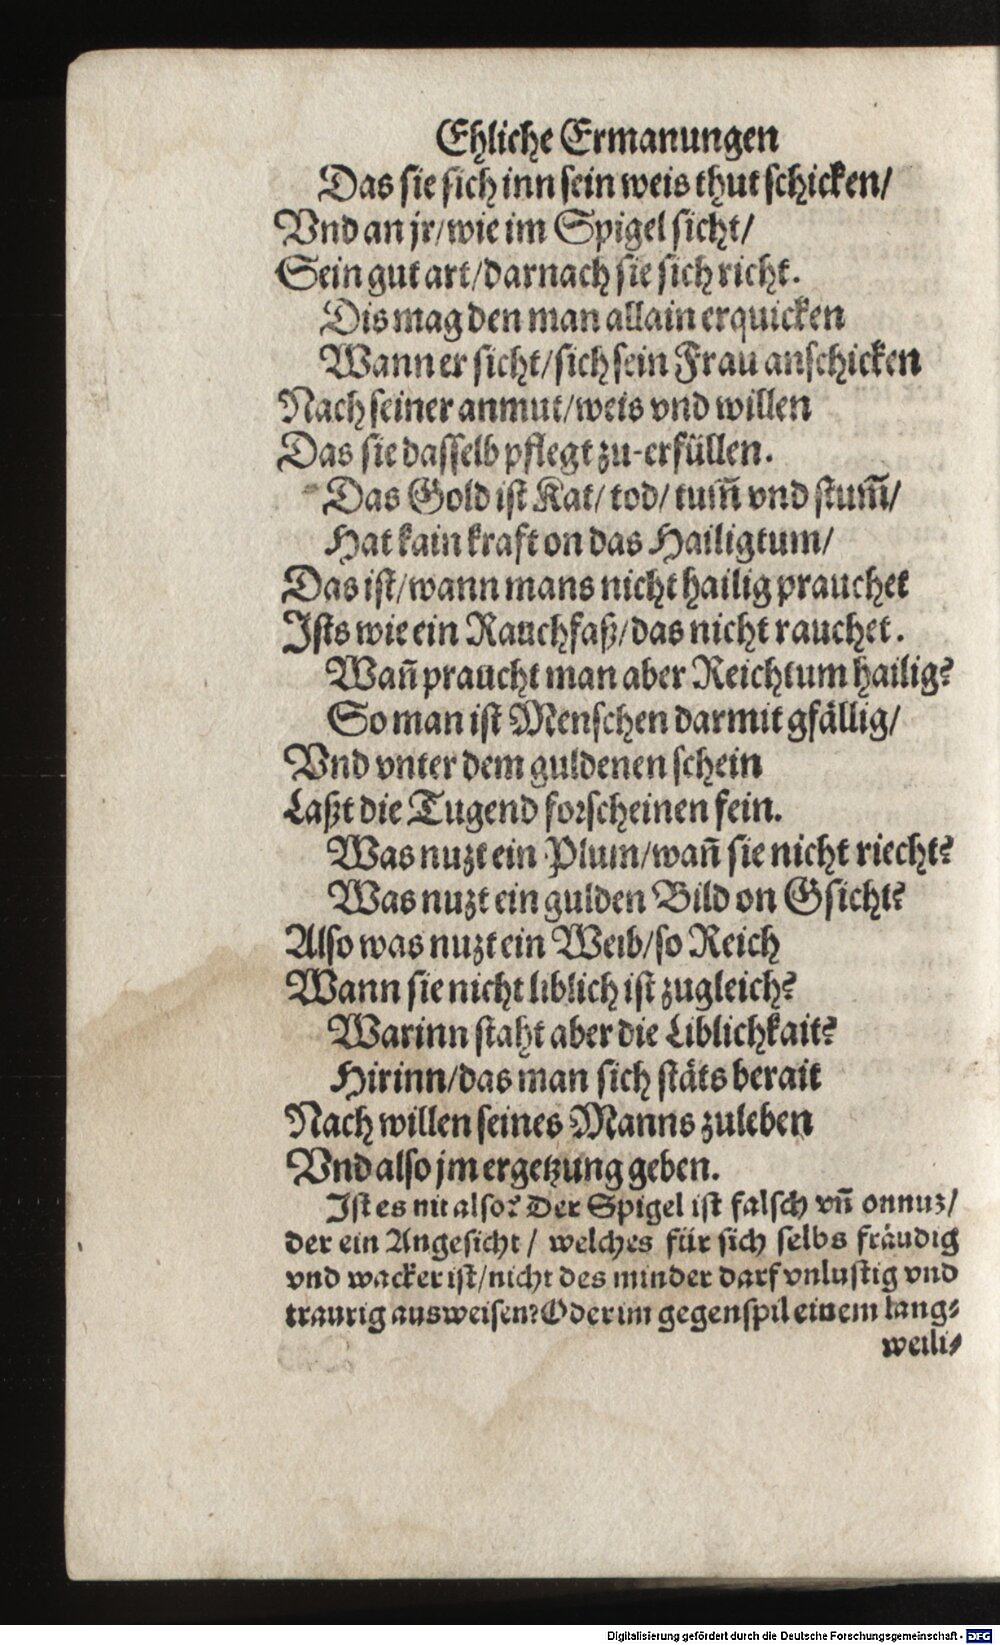 Ehliche Ermanungen
Das sie sich inn sein weis thut schicken/
Vnd an jr/wie im Spigel sicht/
Sein gut art/darnach sie sich richt.
Dis mag den man allain erquicken
Wann er sicht/sich sein Frau anschicken
Nach seiner anmut/weis vnd willen
Das sie dasselb pflegt zu-erfüllen.
Das Gold ist Kat/tod/tum̃ vnd stum̃/
Hat kain kraft on das Hailigtum/
Das ist/wann mans nicht hailig prauchet
Ists wie ein Rauchfaß/das nicht rauchet.
Wañ praucht man aber Reichtum hailig?
So man ist Menschen darmit gfällig/
Vnd vnter dem guldenen schein
Laßt die Tugend forscheinen fein.
Was nuzt ein Plum/wañ sie nicht riecht?
Was nuzt ein gulden Bild on Gsicht?
Also was nuzt ein Weib/so Reich
Wann sie nicht liblich ist zugleich?
Warinn staht aber die Liblichkait?
Hirinn/das man sich stäts berait
Nach willen seines Manns zuleben
Vnd also jm ergetzung geben.
Ist es nit also? Der Spigel ist falsch vñ onnuz/
der ein Angesicht / welches für sich selbs fräudig
vnd wacker ist/nicht des minder darf vnlustig vnd
traurig ausweisen? Oder im gegenspil einem lang-
weili-
Digitalisierung gefördert durch die Deutsche Forschungsgemeinschaft - DFG